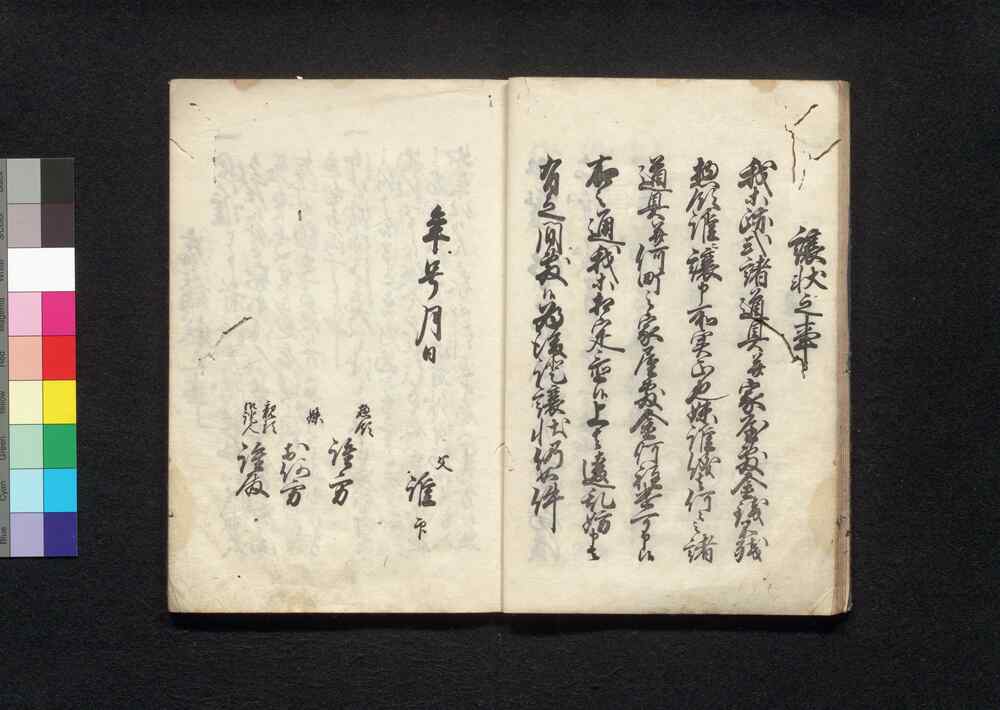 譲状之事
我等跡式諸道具并家屋敷金銀銭
惣領誰ニ譲申所実正也妹誰儀ハ何々之諸
道具并何町之家屋敷金何程譲可申候
右之通我等相定置候上ハ違乱妨申者
有之間敷候為後証譲状仍如件
年号月日
父
誰 印
惣領
誰方
妹
お何方
親類
誰殿